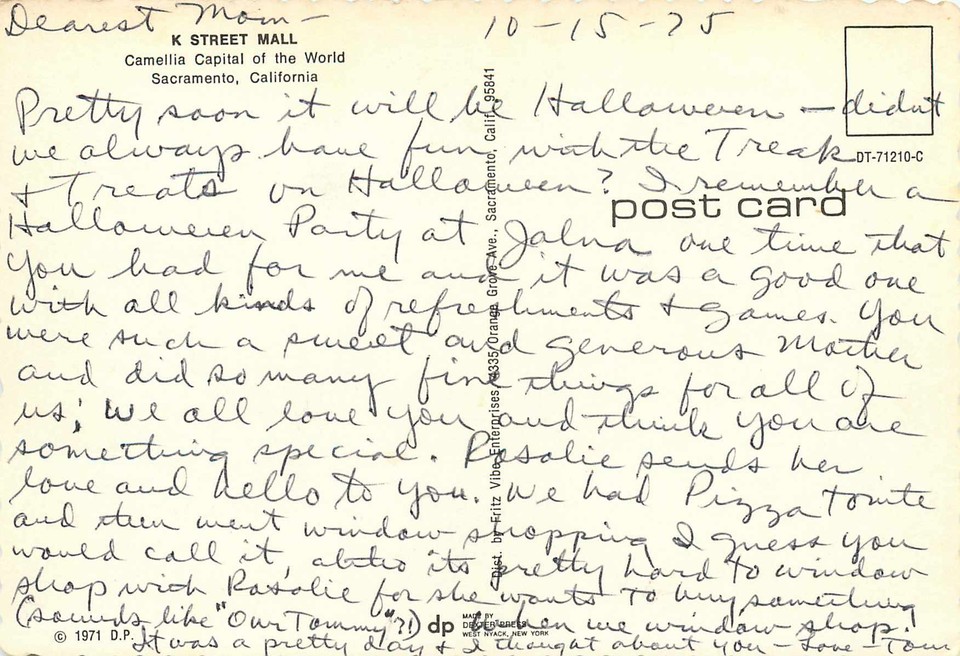 Dearest Mom -
10-15-75
K STREET MALL
Camellia Capital of the World
Sacramento, California
Pretty soon it will be Halloween - didn't
we always have fun with the Treak
DT-71210-C
& Treats on Halloween? I remember a
post card
Halloween Party at Jalna one time that
you had for me and it was a good one
with all kinds of refreshments & games. You
were such a sweet and generous Mother
and did so many fine things for all of
us; We all love you and think you are
something special. Rosalie sends her
love and hello to you. We had Pizza tonite
and then went window shopping I guess you
would call it, altho its pretty hard to window
shop with Rosalie for she wants to buy something
(sounds like "Our Tommy"?!) when we window shop!
It was a pretty day & I thought about you - Love - Tom
© 1971 D.P.
dp
MADE BY
DEXTER PRESS
WEST NYACK, NEW YORK
Dist. by Fritz Vibe Enterprises, 4335 Orange Grove Ave., Sacramento, Calif. 95841